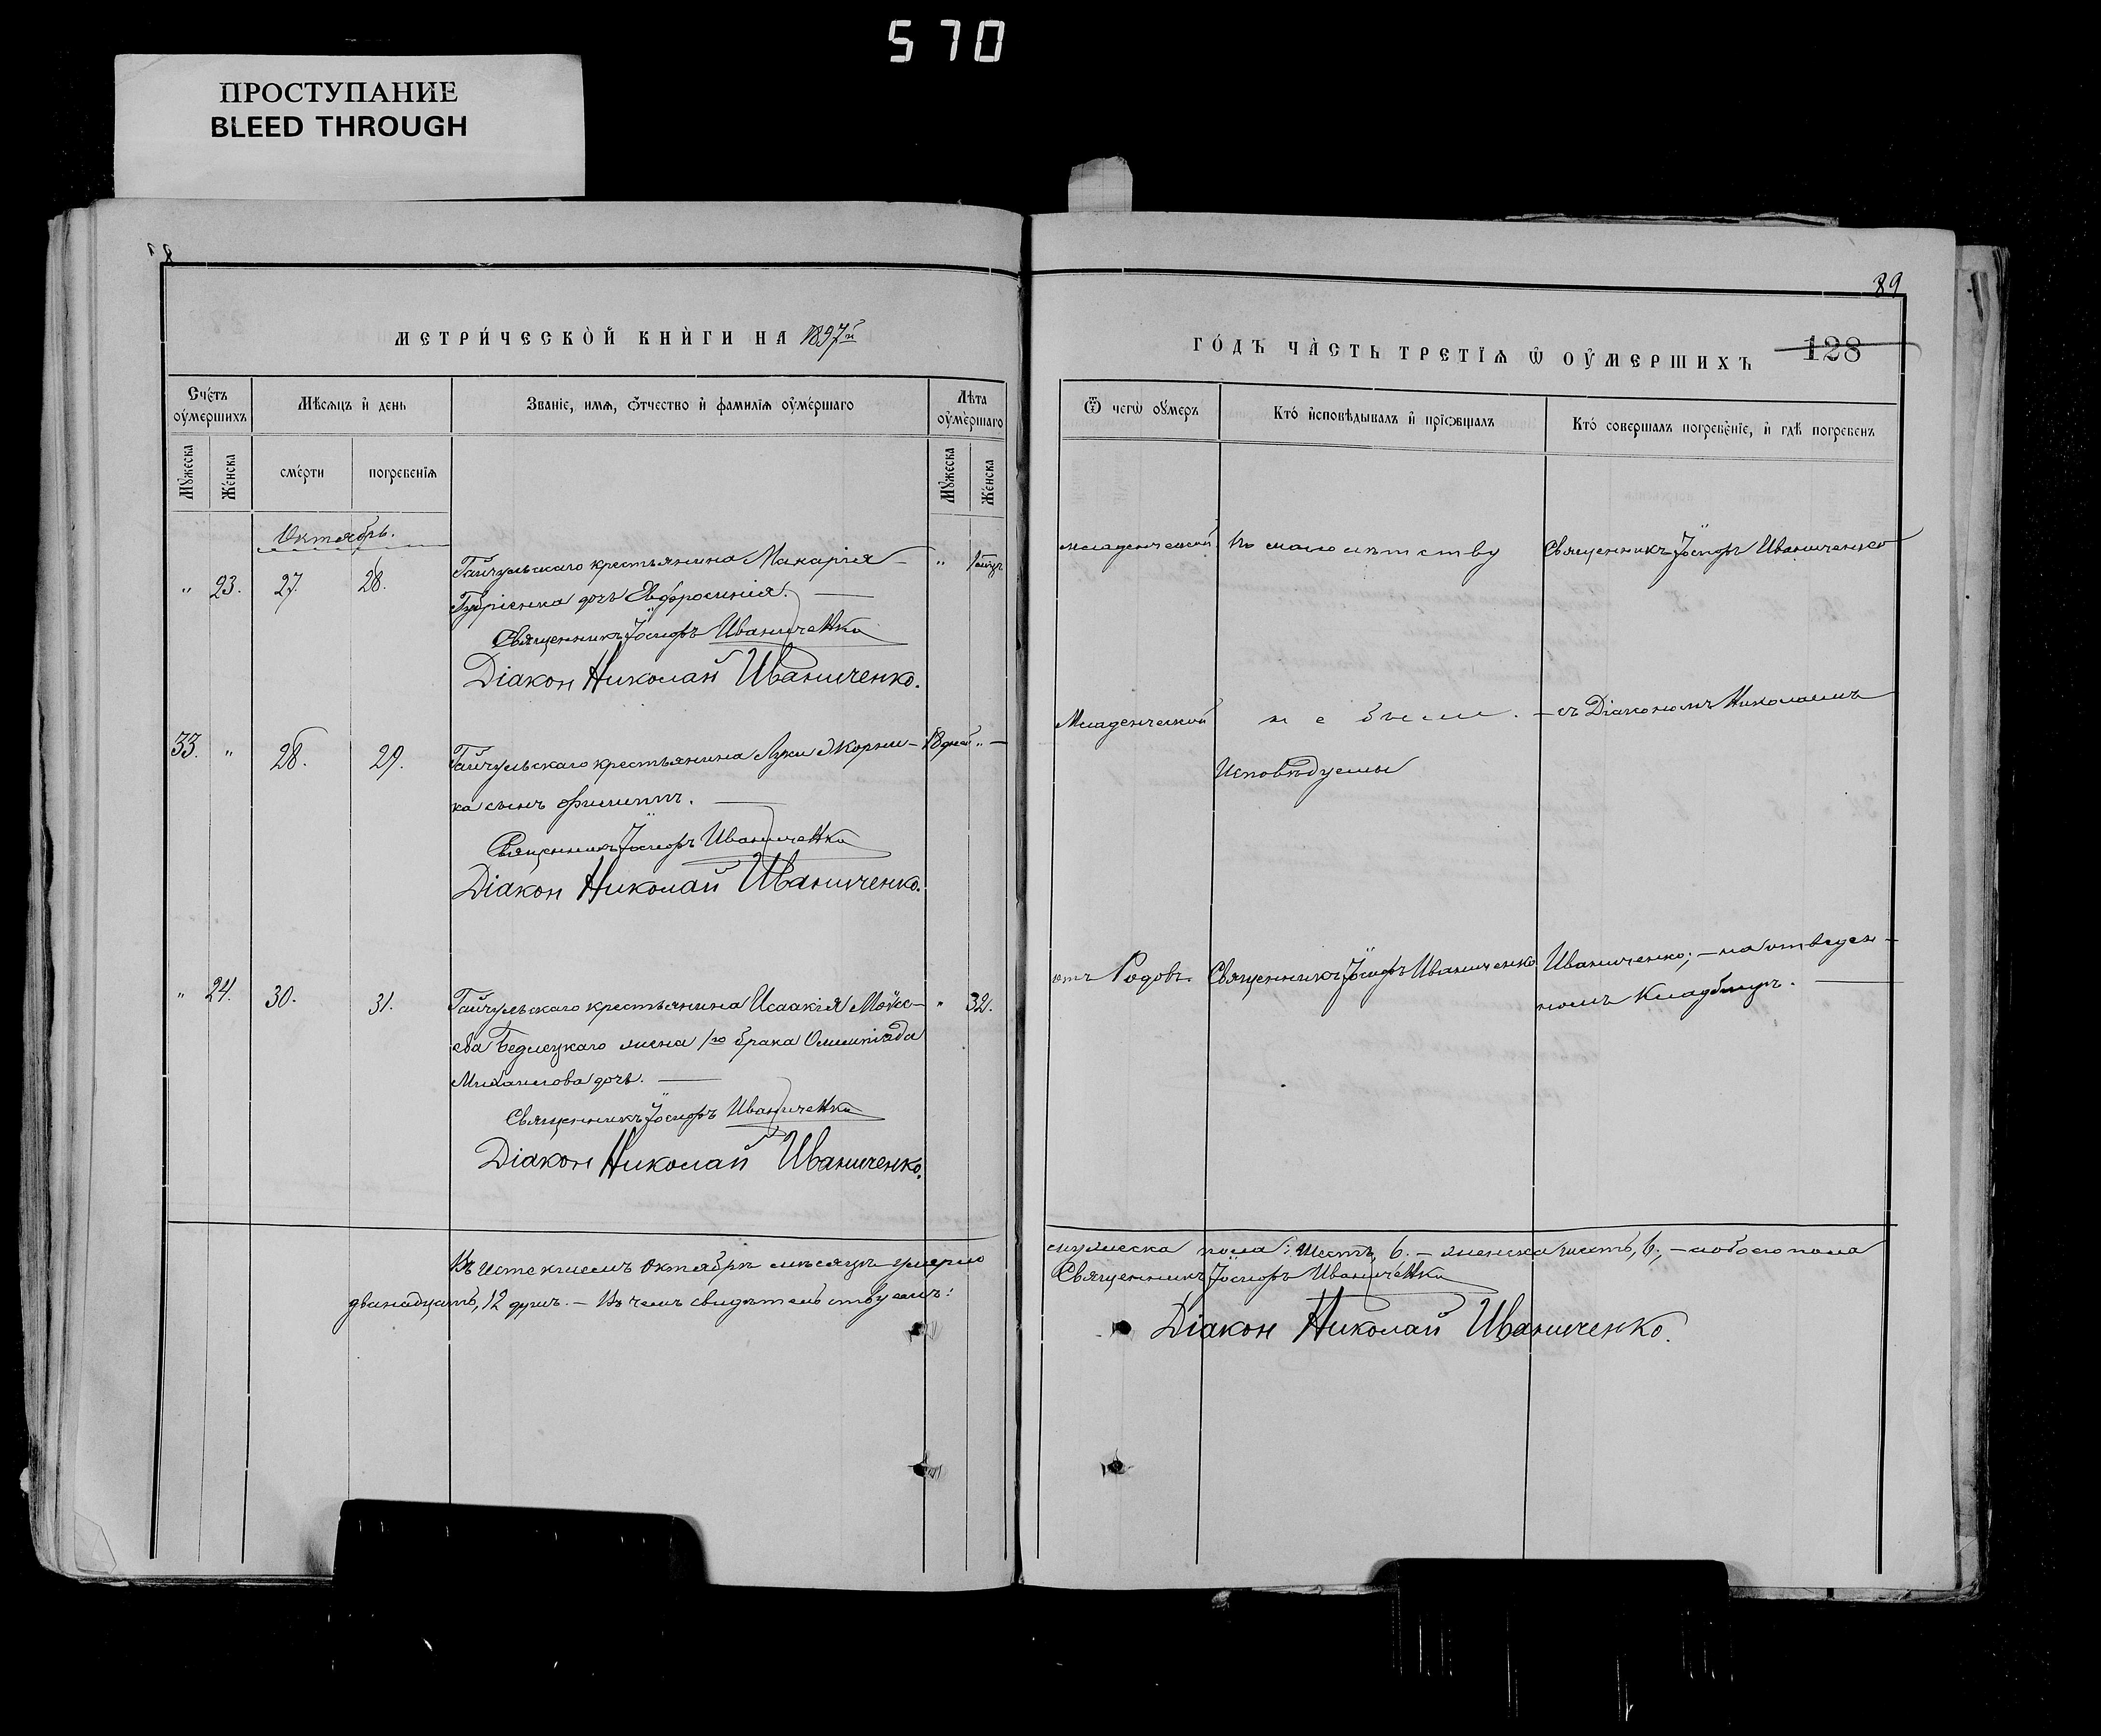 570
ПРОСТУПАНИЕ
BLEED THROUGH
МЕТРИ́ЧЕСКОЙ КНИ́ГИ НА 1897й
Сче́тъ оумершихъ
Мѣсѧцъ и день
Званіе, имѧ, ѿчество и фамиліѧ оумершаго
Лѣта оумершаго
Мужеска
Женска
смерти
погребеніѧ
Мужеска
Женска
Октябрь.
" 23. 27. 28. Гайчульскаго крестьянина Макарія "
дочь Евфросинія.
Священникъ Іосифъ Иваниченко
Діакон Николай Иваниченко.
33. " 28. 29. Гайчульскаго крестьянина Луки Корни- 18 дней "
ка сынъ Филиппъ.
Священникъ Іосифъ Иваниченко
Діакон Николай Иваниченко.
" 24. 30. 31. Гайчульскаго крестьянина Исаакія Моѵсе- " 32.
ева Бедлецкаго жена 1го брака Олимпіада
Михаилова дочь.
Священникъ Іосифъ Иваниченко
Діакон Николай Иваниченко.
Въ истекшемъ Октябрѣ мѣсяцѣ умерло
двѣнадцать, 12 душъ. – Въ чемъ свидѣтельствуемъ:
89
ГОДЪ ЧАСТЬ ТРЕТІѦ Ѡ ОУМЕРШИХЪ 128
Ѿ чегѡ оумеръ
Кто исповѣдывалъ и пріобщалъ
Кто совершалъ погребеніе, и гдѣ погребенъ
Младенческой По малолѣтству Священникъ Іосифъ Иваниченко
Младенческой не были. – съ Діакономъ Николаемъ
Исповѣдуемы
отъ Родовъ. Священникъ Іосифъ Иваниченко Иваниченко; – на отведен-
номъ Кладбищѣ.
мужеска пола: шесть, 6. – женска шесть, 6; – обоего пола
Священникъ Іосифъ Иваниченко
Діакон Николай Иваниченко.